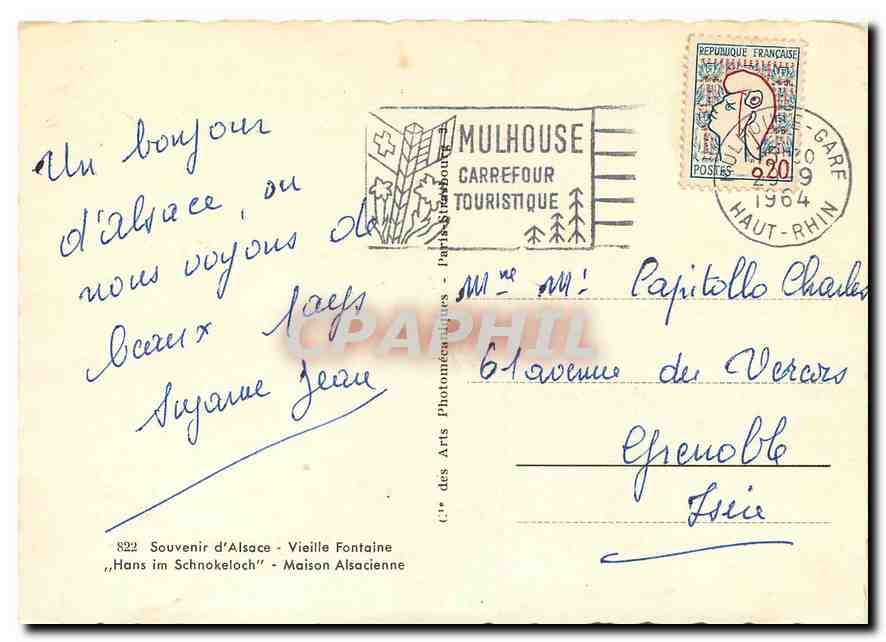 Un bonjour
d'alsace, ou
nous voyons de
beaux pays
Suzanne Jean
822 Souvenir d'Alsace - Vieille Fontaine
„Hans im Schnokeloch" - Maison Alsacienne
Cie des Arts Photomécaniques - Paris-Strasbourg 3
MULHOUSE
CARREFOUR
TOURISTIQUE
REPUBLIQUE FRANÇAISE
POSTES 0,20
MULHOUSE-GARE
1964
HAUT-RHIN
Mme Mr Capitollo Charles
61 avenue du Vercors
Grenoble
Isère
CPAPHIL